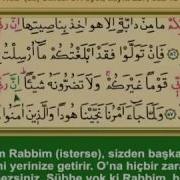 مَا مِنْ دَابَّةٍ اِلَّا هُوَ اٰخِذٌ بِنَاصِيَتِهَا اِنَّ
فَاِنْ تَوَلَّوْا فَقَدْ اَبْلَغْتُكُمْ مَا اُرْسِلْتُ
قَوْمًا غَيْرَكُمْ وَلَا تَضُرُّونَهُ شَيْـًٔا اِنَّ
وَلَمَّا جَاءَ اَمْرُنَا نَجَّيْنَا هُودًا وَالَّذِينَ اٰمَنُوا
m Rabbim (isterse), sizden başka
ni yerinize getirir. O'na hiçbir zara
ersiniz. Şüphe yok ki Rabbim, h